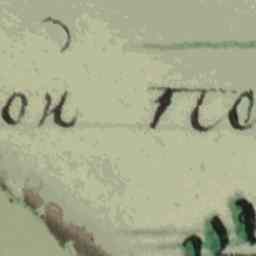 он по